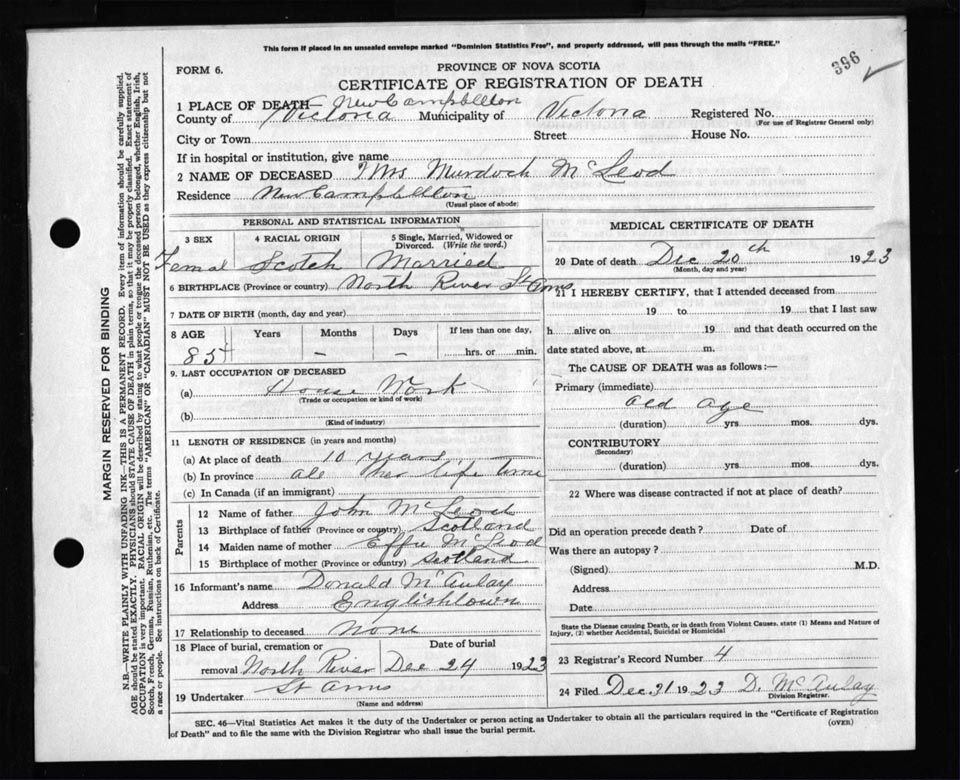 This form if placed in an unsealed envelope marked "Dominion Statistics Free", and properly addressed, will pass through the mails "FREE."
396
FORM 6.
PROVINCE OF NOVA SCOTIA
CERTIFICATE OF REGISTRATION OF DEATH
1 PLACE OF DEATH— New Campbellton
County of Victoria Municipality of Victoria Registered No.
(For use of Registrar General only)
City or Town Street House No.
If in hospital or institution, give name
2 NAME OF DECEASED Mrs Murdoch McLeod
Residence New Campbellton
(Usual place of abode)
PERSONAL AND STATISTICAL INFORMATION
3 SEX 4 RACIAL ORIGIN 5 Single, Married, Widowed or Divorced. (Write the word.)
Femal Scotch Married
6 BIRTHPLACE (Province or country) North River St Anns
7 DATE OF BIRTH (month, day and year)
8 AGE Years Months Days If less than one day,
85 – – hrs. or min.
9. LAST OCCUPATION OF DECEASED
(a) House Work
(Trade or occupation or kind of work)
(b)
(Kind of industry)
11 LENGTH OF RESIDENCE (in years and months)
(a) At place of death 10 years
(b) In province all her life time
(c) In Canada (if an immigrant)
Parents
12 Name of father John McLeod
13 Birthplace of father (Province or country) Scotland
14 Maiden name of mother Effie McLeod
15 Birthplace of mother (Province or country) Scotland
16 Informant's name Donald McAulay
Address Englishtown
17 Relationship to deceased None
18 Place of burial, cremation or Date of burial
removal North River Dec 24 1923
St Anns
19 Undertaker
(Name and address)
MEDICAL CERTIFICATE OF DEATH
20 Date of death Dec 20th 1923
(Month, day and year)
21 I HEREBY CERTIFY, that I attended deceased from
19 to 19 that I last saw
h alive on 19 and that death occurred on the
date stated above, at m.
The CAUSE OF DEATH was as follows:—
Primary (immediate)
Old age
(duration) yrs. mos. dys.
CONTRIBUTORY
(Secondary)
(duration) yrs. mos. dys.
22 Where was disease contracted if not at place of death?
Did an operation precede death? Date of
Was there an autopsy?
(Signed) M.D.
Address
Date
State the Disease causing Death, or in death from Violent Causes, state (1) Means and Nature of
Injury, (2) whether Accidental, Suicidal or Homicidal
23 Registrar's Record Number 4
24 Filed Dec. 31 1923 D. McAulay
Division Registrar.
SEC. 46—Vital Statistics Act makes it the duty of the Undertaker or person acting as Undertaker to obtain all the particulars required in the "Certificate of Registration
of Death" and to file the same with the Division Registrar who shall issue the burial permit.
(OVER)
MARGIN RESERVED FOR BINDING
N.B.—WRITE PLAINLY WITH UNFADING INK—THIS IS A PERMANENT RECORD. Every item of information should be carefully supplied.
AGE should be stated EXACTLY. PHYSICIANS should STATE CAUSE OF DEATH in plain terms, so that it may be properly classified. Exact statement of
OCCUPATION is very important. RACIAL ORIGIN will be described by stating to what people or tongue the deceased person belonged, whether English, Irish,
Scotch, French, German, Russian, Ruthenian, etc. The terms "AMERICAN" OR "CANADIAN" MUST NOT BE USED as they express citizenship but not
a race or people. See instructions on back of Certificate.